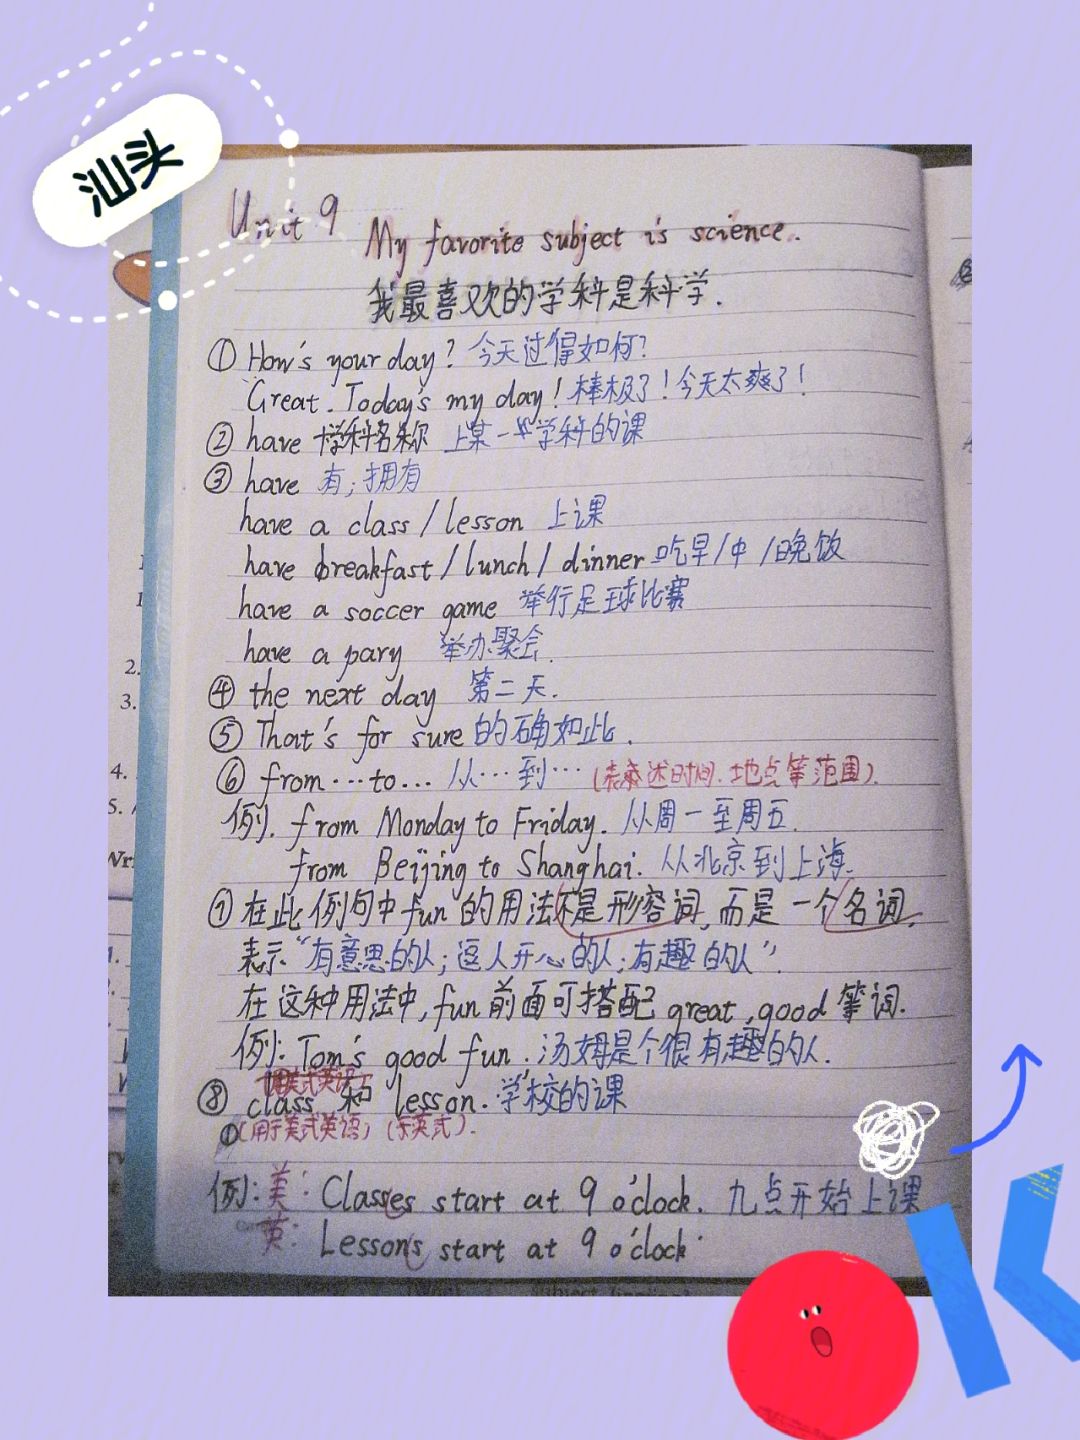 汕头
Unit 9
My favorite subject is science.
我最喜欢的学科是科学.
① How's your day? 今天过得如何?
Great. Today's my day! 棒极了!今天太爽了!
② have +学科名称 上某一学科的课
③ have 有;拥有
have a class/lesson 上课
have breakfast/lunch/dinner 吃早/中/晚饭
have a soccer game 举行足球比赛
have a pary 举办聚会.
④ the next day 第二天.
⑤ That's for sure 的确如此.
⑥ from…to… 从…到… (表述时间.地点等范围).
例. from Monday to Friday. 从周一至周五.
from Beijing to Shanghai. 从北京到上海.
⑦ 在此例句中fun的用法不是形容词,而是一个名词.
表示"有意思的人;逗人开心的人;有趣的人".
在这种用法中,fun前面可搭配great,good等词.
例: Tom's good fun. 汤姆是个很有趣的人.
⑧ class 和 lesson. 学校的课
(用于美式英语) (英式).
例:美: Classes start at 9 o'clock. 九点开始上课
英: Lessons start at 9 o'clock.
2.
3.
4.
5.
OK